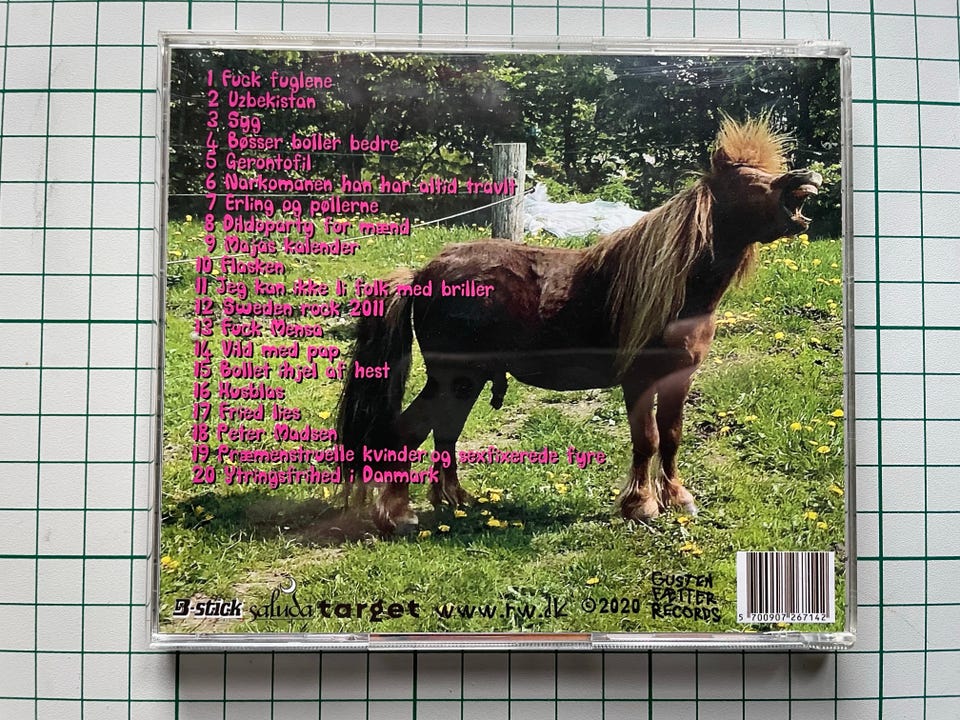 1 Fuck fuglene
2 Uzbekistan
3 Syg
4 Bøsser boller bedre
5 Gerontofil
6 Narkomanen han har altid travlt
7 Erling og pøllerne
8 Dildoparty for mænd
9 Majas kalender
10 Flasken
11 Jeg kan ikke li folk med briller
12 Sweden rock 2011
13 Fuck Mensa
14 Vild med pap
15 Bollet ihjel af hest
16 Husblas
17 Fried lies
18 Peter Madsen
19 Præmenstruelle kvinder og sexfixerede fyre
20 Ytringsfrihed i Danmark
B-stick saluda target www.rw.dk ©2020
GUSTEN
FÆTTER
RECORDS
5 700907 267142